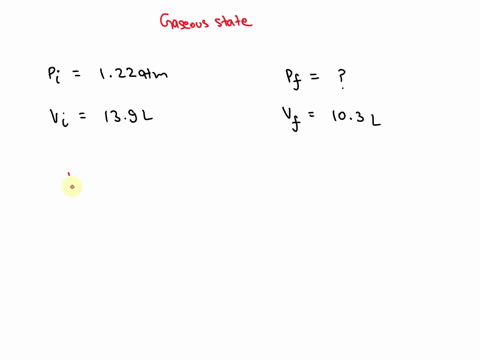 Gaseous state
Pi = 1.22 atm
Pf = ?
Vi = 13.9 L
Vf = 10.3 L